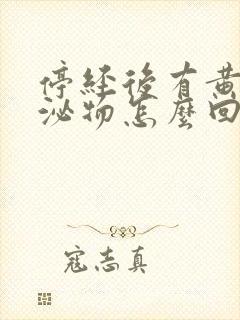 停經後有黃
泌物怎麼回
寇志真